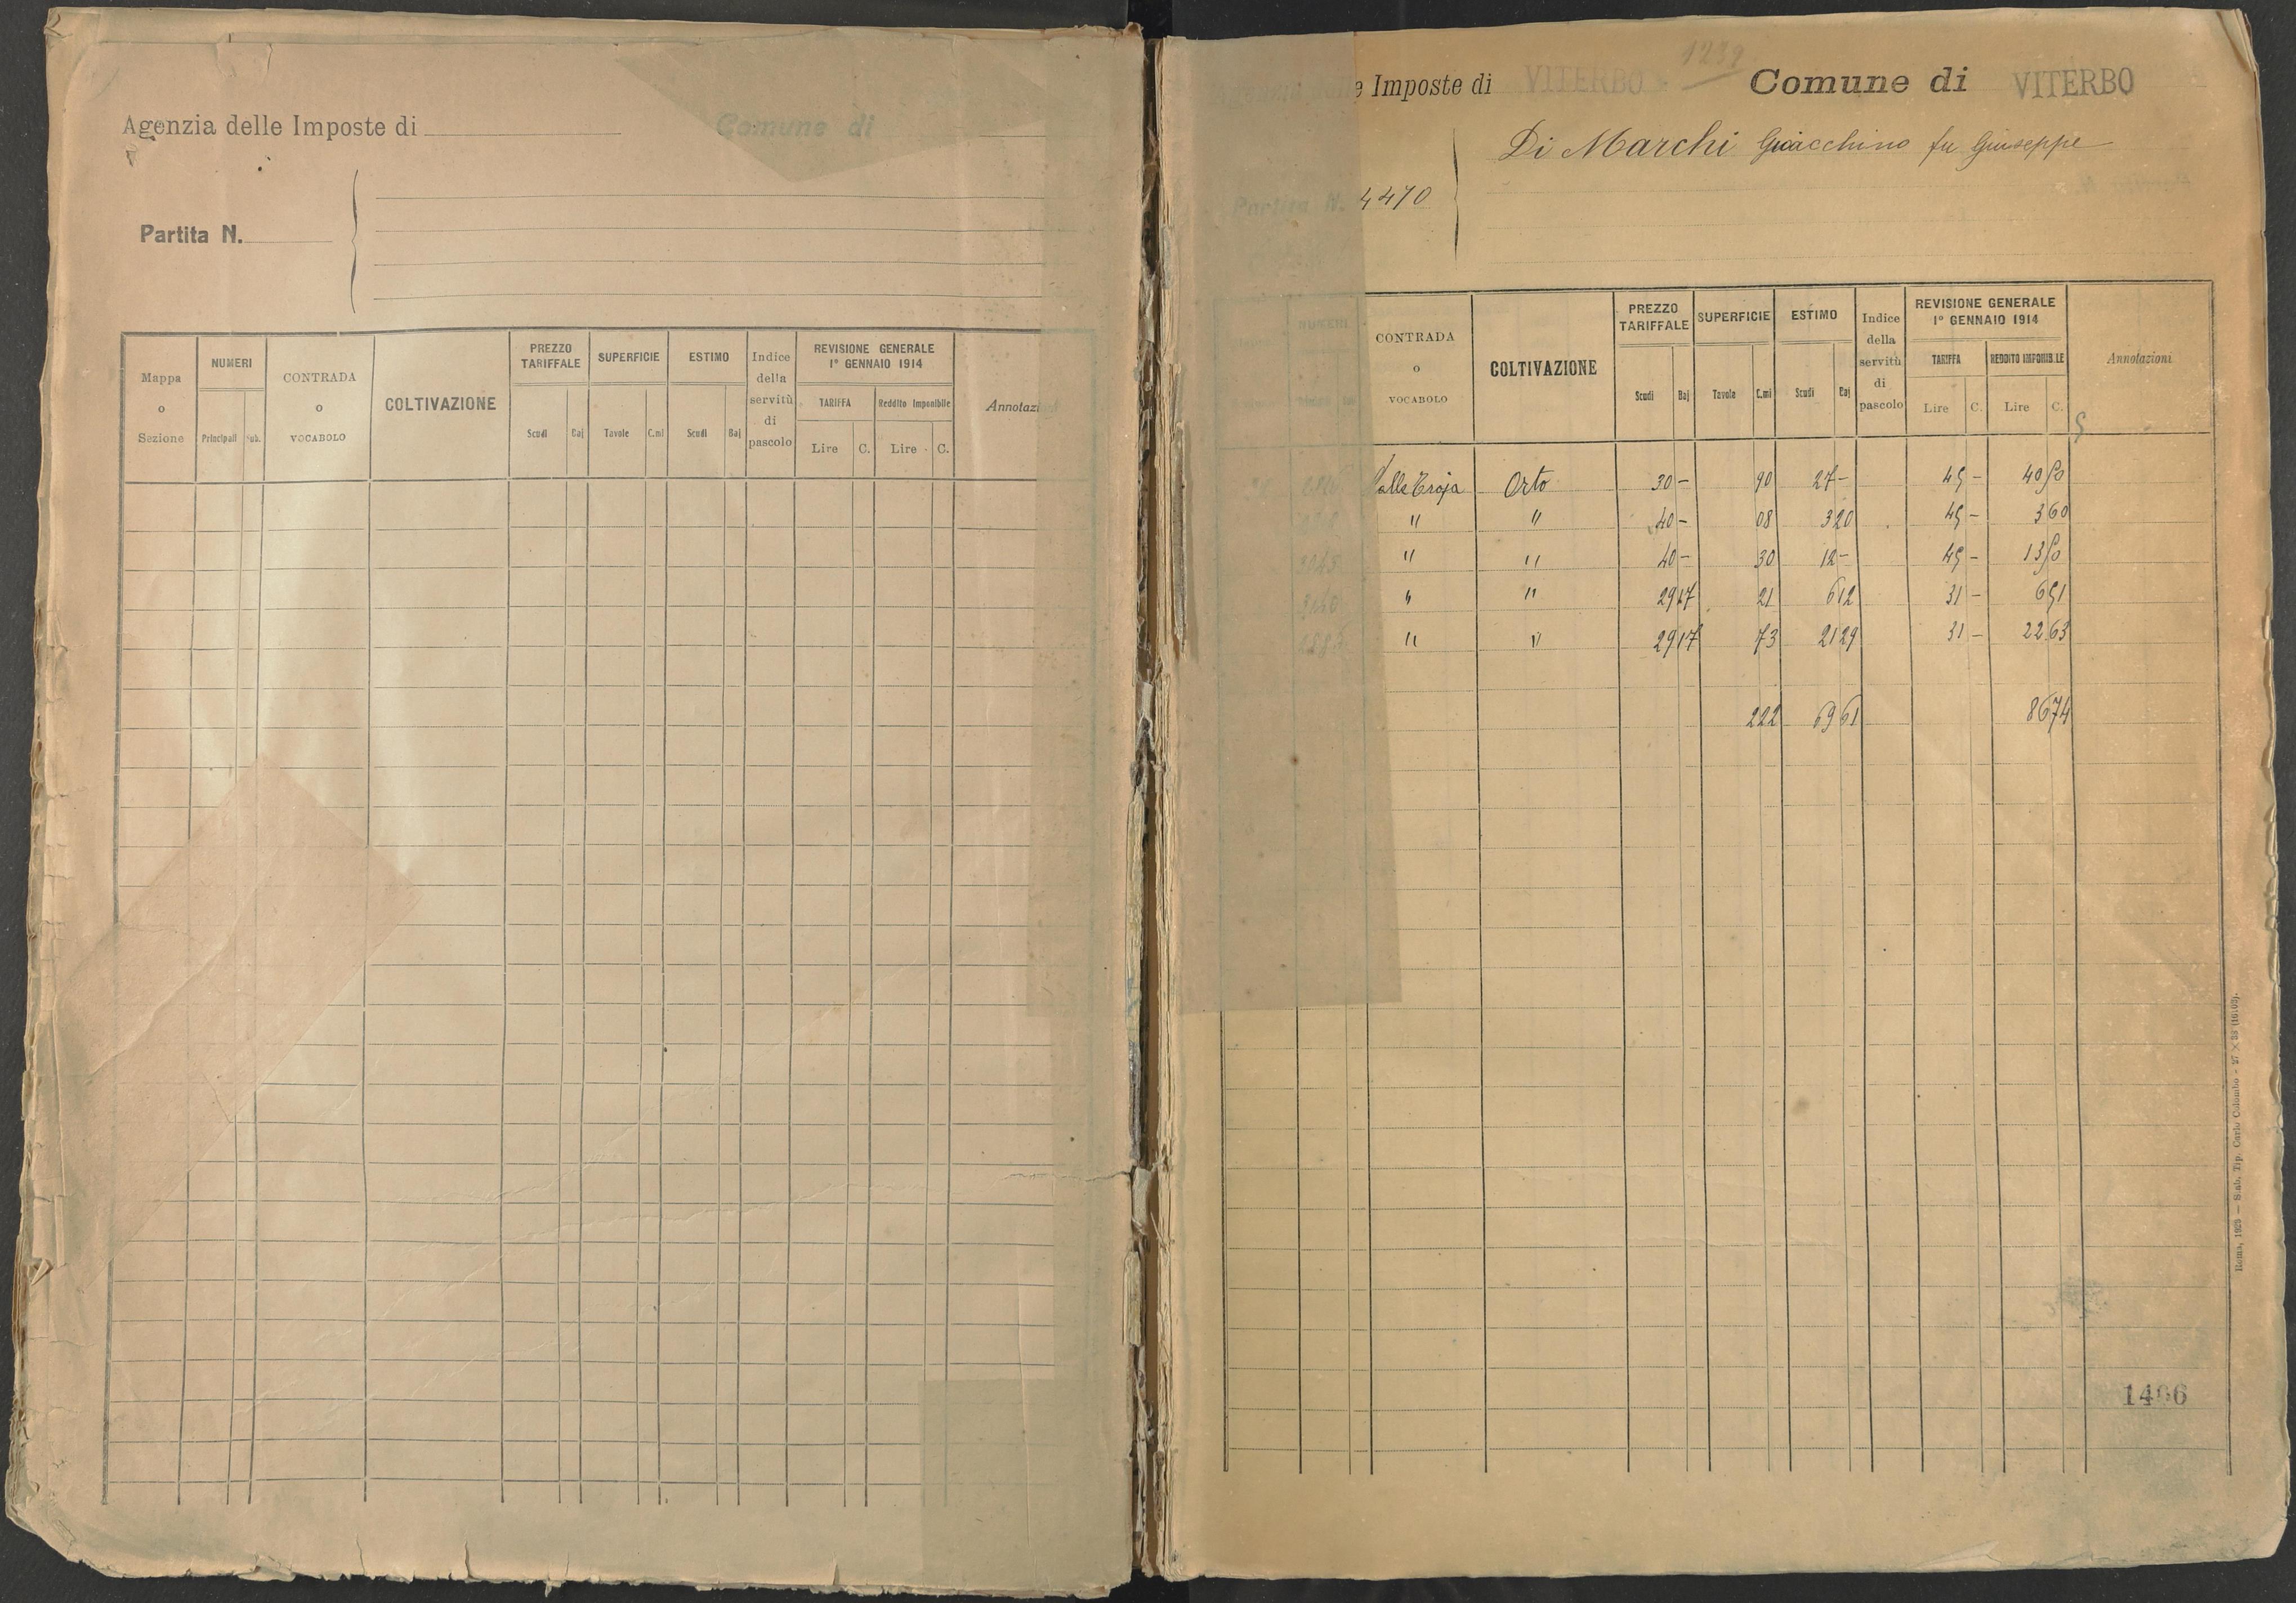 Agenzia delle Imposte di
Comune di
Partita N.
Mappa o Sezione
NUMERI
Principali Sub.
CONTRADA o VOCABOLO
COLTIVAZIONE
PREZZO TARIFFALE
Scudi Baj
SUPERFICIE
Tavole C.mi
ESTIMO
Scudi Baj
Indice della servitù di pascolo
REVISIONE GENERALE
1° GENNAIO 1914
TARIFFA Reddito Imponibile
Lire C. Lire C.
Annotazi
1239
e Imposte di VITERBO Comune di VITERBO
Di Marchi Gioacchino fu Giuseppe
Partita N. 4470
NUMERI
CONTRADA o VOCABOLO
COLTIVAZIONE
PREZZO TARIFFALE
Scudi Baj
SUPERFICIE
Tavole C.mi
ESTIMO
Scudi Baj
Indice della servitù di pascolo
REVISIONE GENERALE
1° GENNAIO 1914
TARIFFA REDDITO IMPONIBILE
Lire C. Lire C.
Annotazioni
Valle Troja Orto 30 - 90 27 - 45 - 40 50
" " 40 - 08 3 20 45 - 3 60
" " 40 - 30 12 - 45 - 13 50
" " 29 17 21 6 12 31 - 6 51
" " 29 17 73 21 29 31 - 22 63
2 22 69 61 86 74
Roma, 1923 — Stab. Tip. Carlo Colombo - 27 × 38
1406